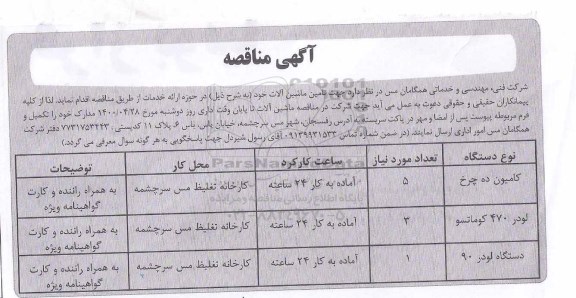 آگهی مناقصه
شرکت فنی، مهندسی و خدماتی همگامان مس در نظر دارد جهت تامین ماشین آلات خود (به شرح ذیل) در حوزه ارائه خدمات از طریق مناقصه اقدام نماید. لذا از کلیه
پیمانکاران حقیقی و حقوقی دعوت به عمل می آید جهت شرکت در مناقصه ماشین آلات تا پایان وقت اداری روز دوشنبه مورخ ۱۴۰۰/۰۴/۲۸ مدارک خود را تکمیل و
فرم مربوطه پیوست پس از امضا و مهر در پاکت سربسته به آدرس رفسنجان، شهر مس سرچشمه، خیابان یاس، یاس ۶، پلاک ۱۱ کدپستی ۷۷۳۱۷۵۳۴۴۳ دفتر شرکت
همگامان مس امور اداری ارسال نمایند. (در ضمن شماره تماس ۰۹۱۳۹۹۳۱۵۳۳ آقای رسول شیردل جهت پاسخگویی به هر گونه سوال معرفی می گردد.)
نوع دستگاه تعداد مورد نیاز ساعت کارکرد محل کار توضیحات
کامیون ده چرخ ۵ آماده به کار ۲۴ ساعته کارخانه تغلیظ مس سرچشمه به همراه راننده و کارت
گواهینامه ویژه
لودر ۴۷۰ کوماتسو ۳ آماده به کار ۲۴ ساعته کارخانه تغلیظ مس سرچشمه به همراه راننده و کارت
گواهینامه ویژه
دستگاه لودر ۹۰ ۱ آماده به کار ۲۴ ساعته کارخانه تغلیظ مس سرچشمه به همراه راننده و کارت
گواهینامه ویژه